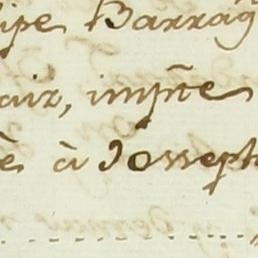 ipe Barrag
air, imp̃re
e à Josseph